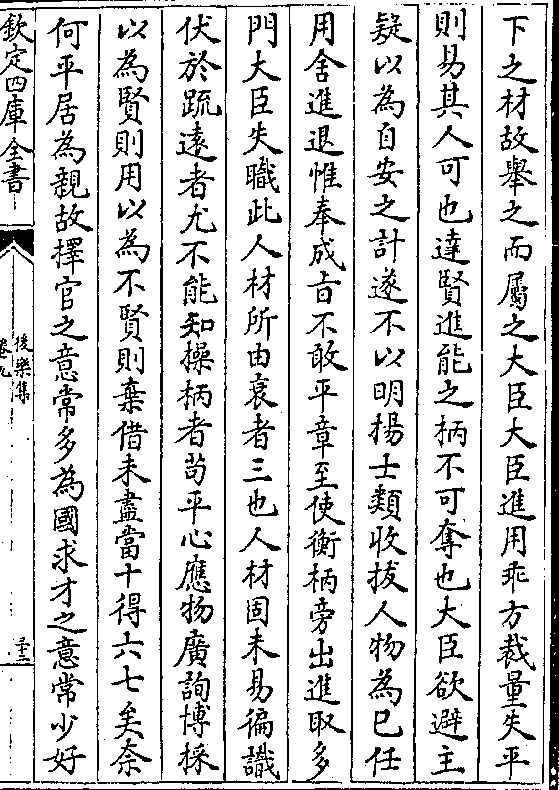 下之材故舉之而屬之大臣大臣進用乖方裁量失平
則易其人可也達賢進能之柄不可奪也大臣欲避主
疑以為自安之計遂不以明揚士類收拔人物為已任
用舍進退惟奉成旨不敢平章至使衡柄旁出進取多
門大臣失職此人材所由衰者三也人材固未易徧識
伏於疏遠者尤不能知操柄者苟平心應物廣詢博採
以為賢則用以為不賢則棄借未盡當十得六七矣奈
何平居為親故擇官之意常多為國求才之意常少好
欽定四庫全書
後樂集
卷九
三十二